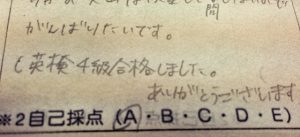 がんばりたいです。
英検4級合格しました。
ありがとうございます
※2自己採点(A・B・C・D・E)